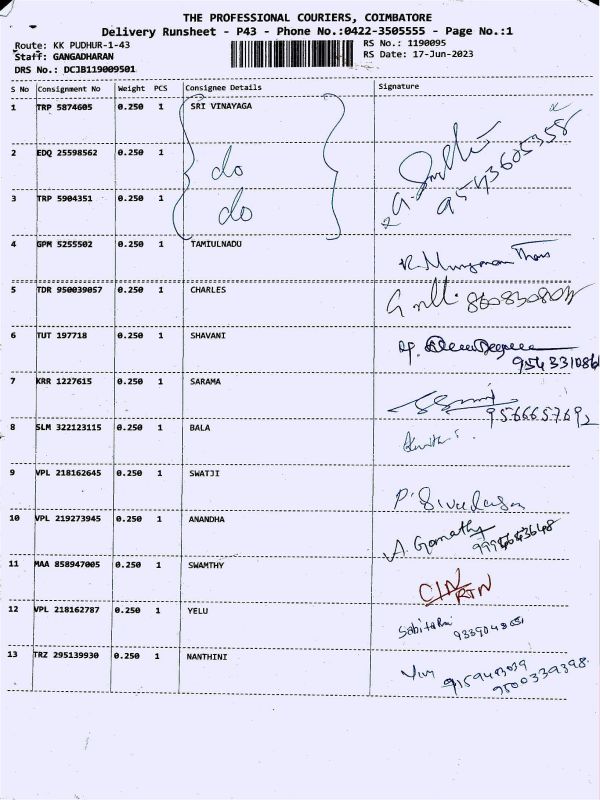 THE PROFESSIONAL COURIERS, COIMBATORE
Delivery Runsheet - P43 - Phone No.:0422-3505555 - Page No.:1
Route: KK PUDHUR-1-43 RS No.: 1190095
Staff: GANGADHARAN RS Date: 17-Jun-2023
DRS No.: DCJB119009501
S No Consignment No Weight PCS Consignee Details Signature
1 TRP 5874605 0.250 1 SRI VINAYAGA
2 EDQ 25598562 0.250 1 do
3 TRP 5904351 0.250 1 do
4 GPM 5255502 0.250 1 TAMIULNADU
5 TDR 950039057 0.250 1 CHARLES
6 TUT 197718 0.250 1 SHAVANI
7 KRR 1227615 0.250 1 SARAMA
9566657692
8 SLM 322123115 0.250 1 BALA
9 VPL 218162645 0.250 1 SWATJI
10 VPL 219273945 0.250 1 ANANDHA
A. Gomathy
11 MAA 858947005 0.250 1 SWAMTHY
12 VPL 218162787 0.250 1 YELU
13 TRZ 295139930 0.250 1 NANTHINI
9500339398